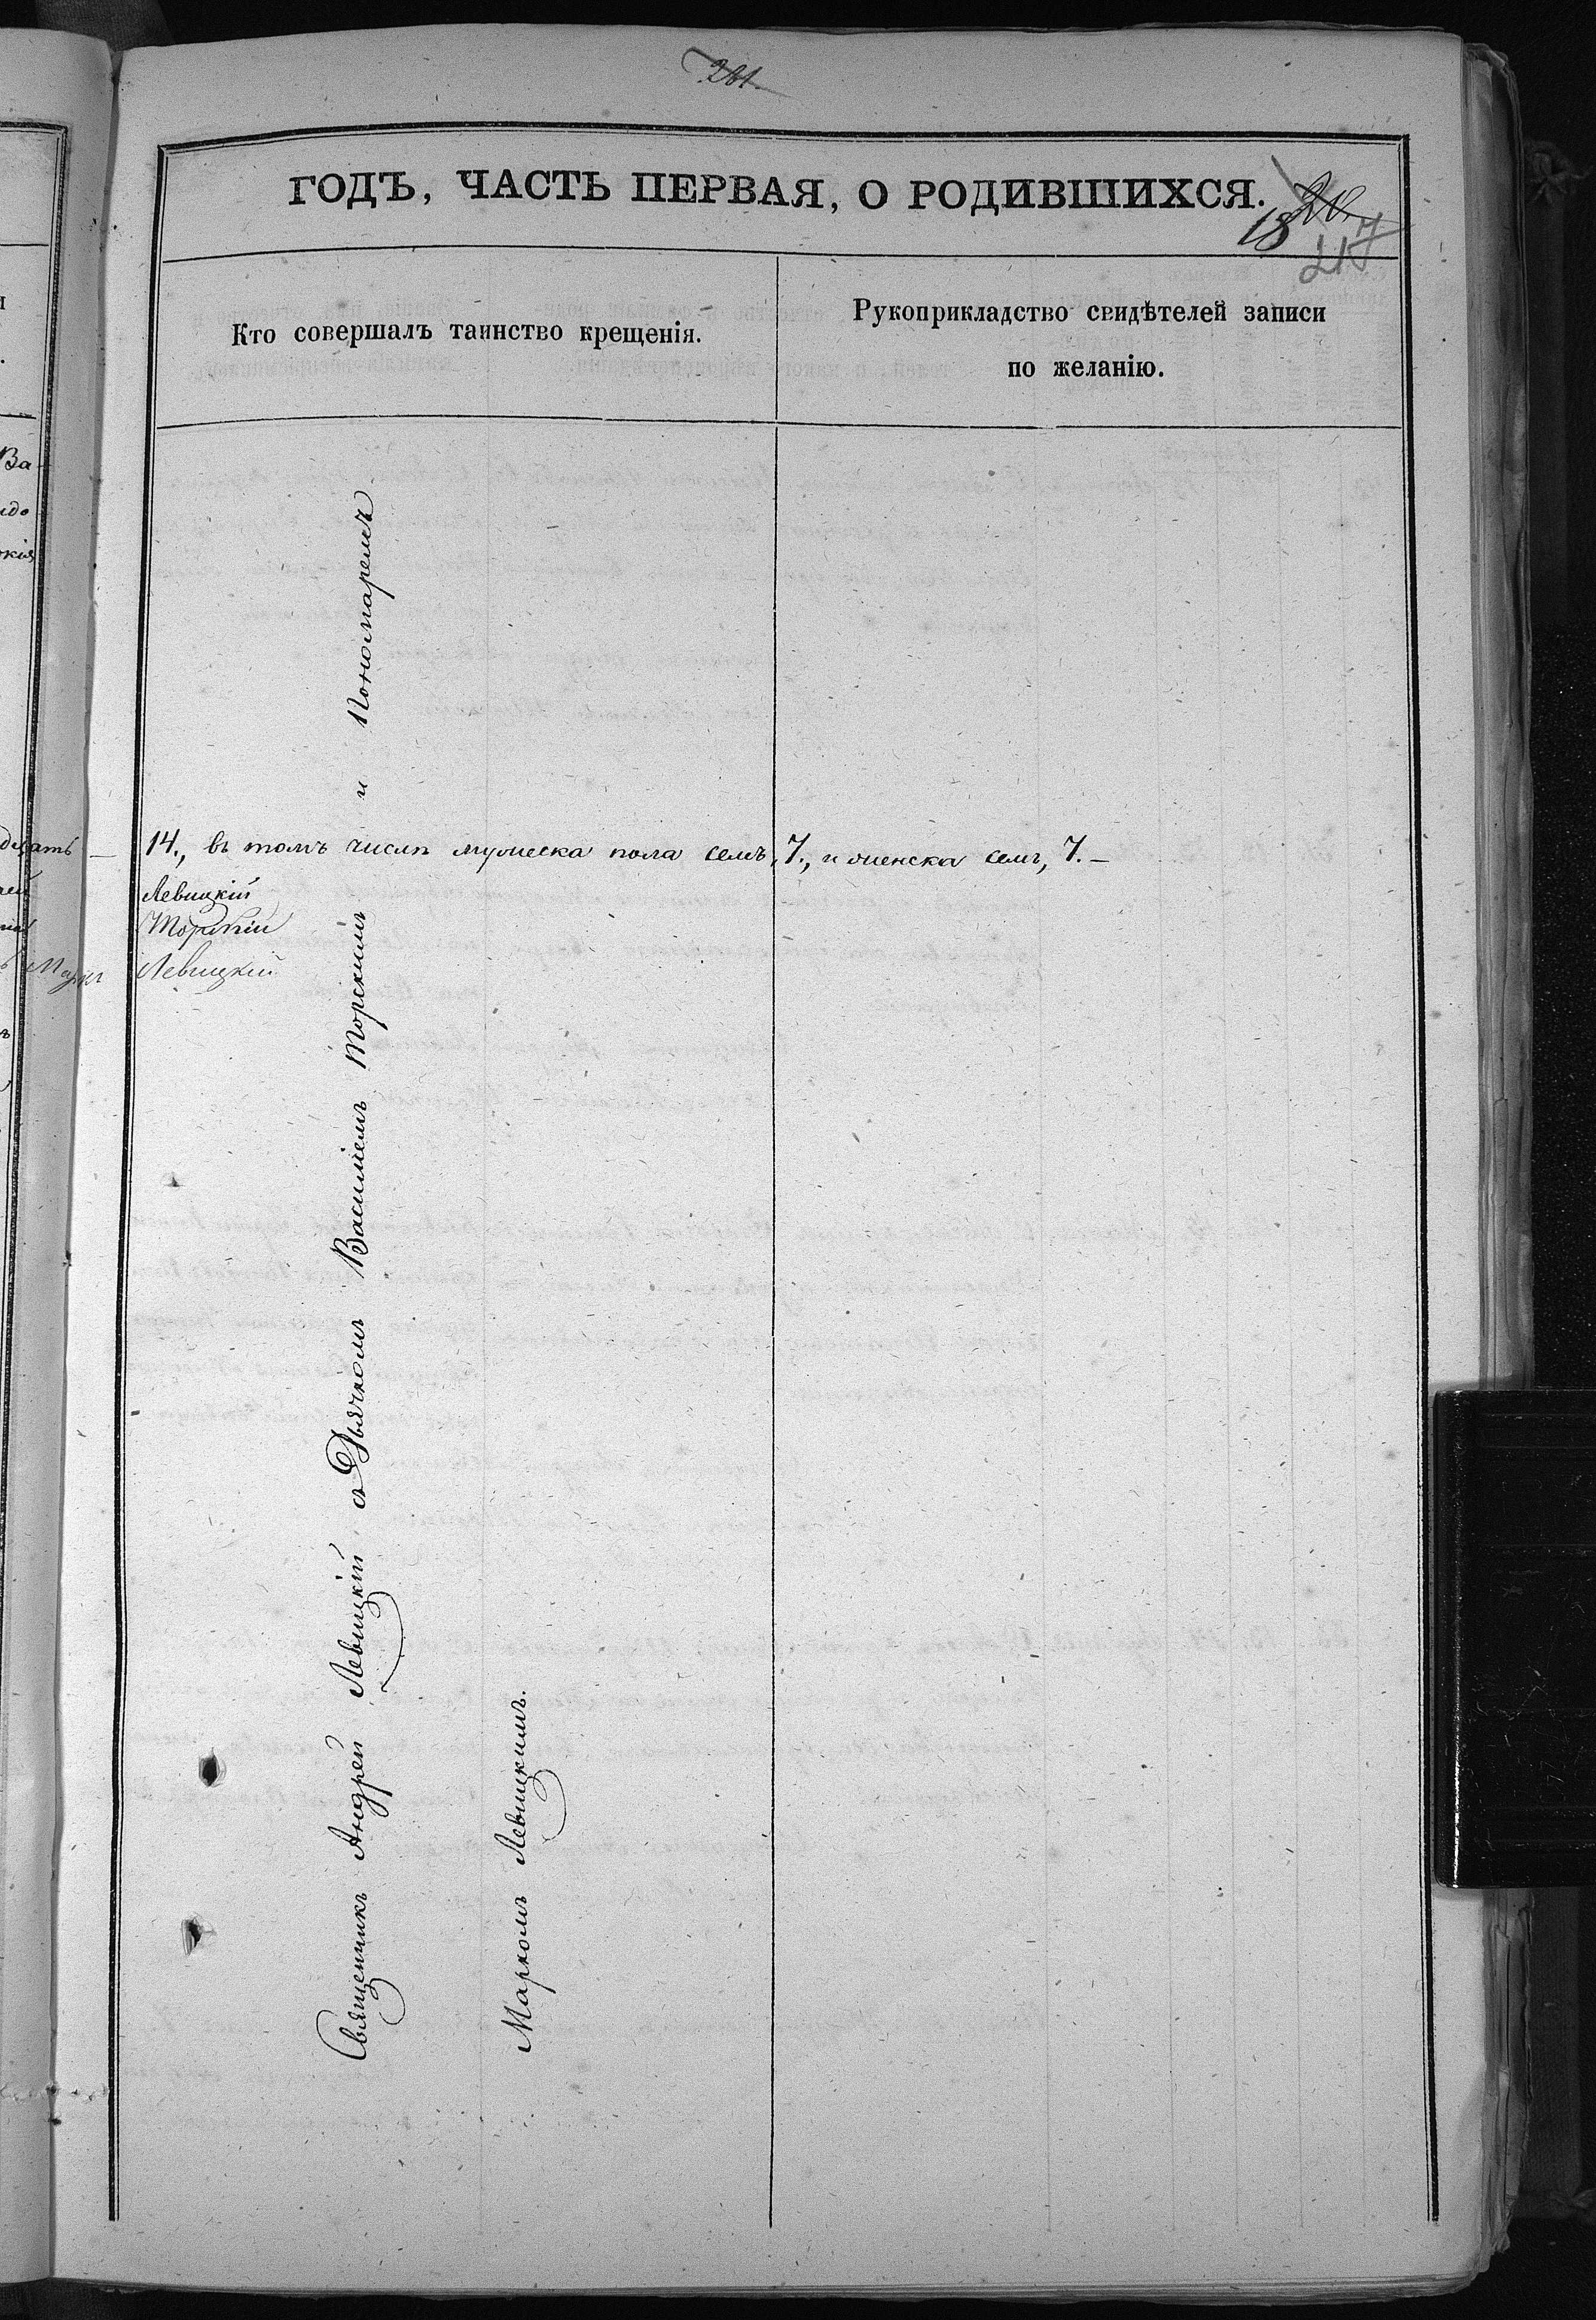 201.
ГОДЪ, ЧАСТЬ ПЕРВАЯ, О РОДИВШИХСЯ.
18
217
Кто совершалъ таинство крещенія.
Рукоприкладство свидѣтелей записи
по желанію.
Ва
дцать — 14., въ томъ числѣ мужеска пола семь, 7., и женска семь, 7. —
Левицкій
Торскій
Марко Левицкій
Священникъ Андрей Левицкій съ Дьячкомъ Василіемъ Торскимъ и Пономаремъ
Маркомъ Левицкимъ.